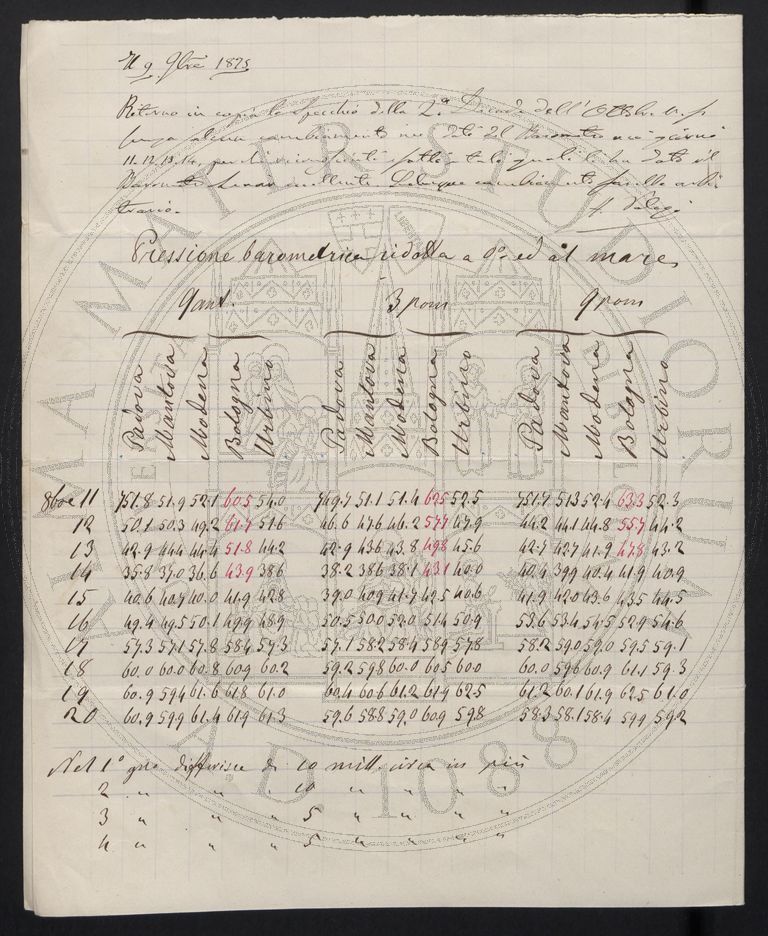 9 9bre 1875
Ritorno in copia lo specchio della 2ª Decade dell'Ottobre u. p.
senza alcun cambiamento nei dati del Barometro nei giorni
11. 12. 13. 14, tali quali li ha dati il
Barometro
trario.
Pressione barometrica ridotta a 0° ed al mare
9 ant. 3 pom 9 pom
Padova Mantova Modena Bologna Urbino Padova Mantova Modena Bologna Urbino Padova Mantova Modena Bologna Urbino
8bre 11 751.8 51.9 52.1 60.5 54.0 749.7 51.1 51.4 62.5 52.5 751.7 51.3 52.4 63.3 52.3
12 50.1 50.3 49.2 61.7 51.6 46.6 47.6 46.2 57.7 47.9 44.2 44.1 44.8 55.7 44.2
13 42.9 44.4 44.4 51.8 44.2 42.9 43.6 43.8 49.8 45.6 42.7 42.7 41.9 47.8 43.2
14 35.8 37.0 36.6 43.9 38.6 38.2 38.6 38.1 43.1 40.0 40.4 39.9 40.4 41.9 40.9
15 40.6 40.7 40.0 41.9 42.8 39.0 40.9 41.7 42.5 40.6 41.9 42.0 43.6 43.5 44.5
16 49.4 49.5 50.1 49.9 48.9 50.5 50.0 52.0 51.4 50.9 53.6 53.4 54.5 52.9 54.6
17 57.3 57.1 57.8 58.4 57.3 57.1 58.2 58.4 58.9 57.8 58.2 59.0 59.0 59.5 59.1
18 60.0 60.0 60.8 60.9 60.2 59.2 59.8 60.0 60.5 60.0 60.0 59.6 60.9 61.1 59.3
19 60.9 59.4 61.6 61.8 61.0 60.4 60.6 61.2 61.9 62.5 61.2 60.1 61.9 62.5 61.0
20 60.9 59.9 61.4 61.9 61.3 59.6 58.8 59.0 60.9 59.8 58.3 58.1 58.4 59.9 59.2
Nel 1° gno differisce di 10 mill. circa in più
2 " " " 10 " " " "
3 " " " 5 " " " "
4 " " " 5 " " " "
ALMA MATER STUDIORUM
A.D. 1088